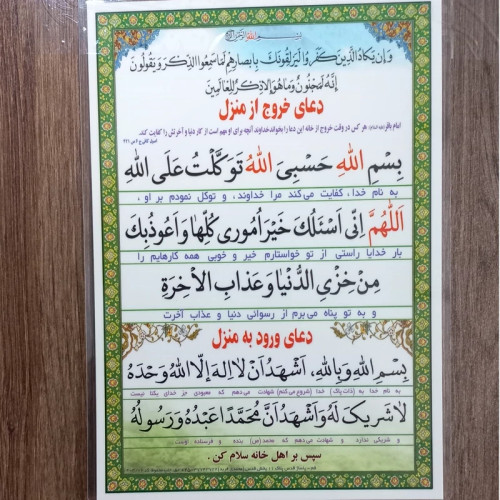 بسم الله الرحمن الرحیم
وَاِنْ یَکادُ الَّذینَ کَفَرُوا لَیُزْلِقُونَکَ بِاَبْصارِهِمْ لَمّا سَمِعُوا الذِّکْرَ وَیَقُولُونَ
اِنَّهُ لَمَجْنُونٌ وَما هُوَ اِلّا ذِکْرٌ لِلْعالَمینَ
دعای خروج از منزل
امام باقر (علیه السلام): هر کس در وقت خروج از خانه این دعا را بخواند خداوند آنچه برای او مهم است از کار دنیا و آخرتش را کفایت کند.
اصول کافی ج ۲ ص
بِسْمِ اللهِ حَسْبِیَ اللهُ تَوَکَّلْتُ عَلَی اللهِ
به نام خدا، کفایت می‌کند مرا خداوند، و توکل نمودم بر او،
اَللّهُمَّ اِنّی اَسْئَلُکَ خَیْرَ اُمُوری کُلِّها وَ اَعُوذُ بِکَ
بار خدایا راستی از تو خواستارم خیر و خوبی همه کارهایم را
مِنْ خِزْیِ الدُّنْیا وَ عَذابِ الْاخِرَةِ
و به تو پناه می‌برم از رسوائی دنیا و عذاب آخرت
دعای ورود به منزل
بِسْمِ اللهِ وَ بِاللهِ، اَشْهَدُ اَنْ لا اِلهَ اِلَّا اللهُ وَحْدَهُ
به نام خدا به (ذات پاک) خدا (شروع می‌کنم) شهادت می‌دهم که معبودی جز خدای یکتا نیست
لا شَریکَ لَهُ وَ اَشْهَدُ اَنَّ مُحَمَّدًا عَبْدُهُ وَ رَسُولُهُ
و شریکی ندارد و شهادت می‌دهم که محمد (ص) بنده و فرستاده اوست
سپس بر اهل خانه سلام کن.